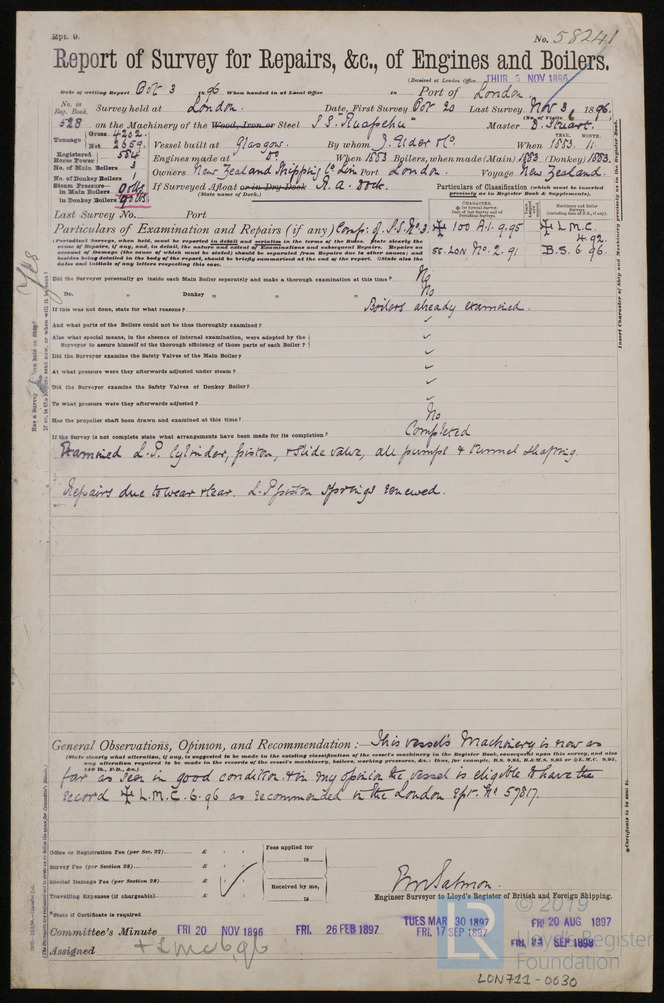 Rpt. 9.
No. 58241
Report of Survey for Repairs, &c., of Engines and Boilers.
(Received at London Office THUR 5 NOV 1896
Date of writing Report Nov 3 96 When handed in at Local Office 18 Port of London.
No. in Reg. Book. Survey held at London. Date, First Survey Oct 20 Last Survey Nov 3, 1896.
(No. of Visits 6)
528 on the Machinery of the Wood, Iron or Steel S.S. "Ruapehu" Master B. Stuart.
Tonnage Gross 4202. Net 2659. Vessel built at Glasgow. By whom J. Elder & Co. When YEAR. 1883. MONTH. 11.
Registered Horse Power 584 Engines made at Do. When 1883 Boilers, when made (Main) 1883 (Donkey) 1883.
No. of Main Boilers 3 Owners New Zealand Shipping Co. Lim Port London. Voyage New Zealand.
No. of Donkey Boilers 1
Steam Pressure— in Main Boilers 90 lbs If Surveyed Afloat or in Dry Dock R. A. Dock.
in Donkey Boilers 90 lbs. (State name of Dock.)
Particulars of Classification (which must be inserted precisely as in Register Book & Supplements).
Last Survey No. Port
Particulars of Examination and Repairs (if any) Comp: of S.S. No. 3.
CHARACTER.
✠ for Special Survey. Date of last Survey and of Periodical Surveys.
Machinery and Boiler Surveys (including date of N.B., if any).
✠ 100 A.1. 9.95 ✠ L.M.C. 4.92
SS. LON No. 2. 91. B.S. 6.96.
(Periodical Surveys, when held, must be reported in detail and seriatim in the terms of the Rules. State clearly the cause of Repairs, if any, and, in detail, the nature and extent of Examinations and subsequent Repairs. Repairs on account of Damage (the cause of which must be stated) should be separated from Repairs due to other causes; and besides being detailed in the body of the report, should be briefly summarised at the end of the report. State also the dates and initials of any letters respecting this case.
Did the Surveyor personally go inside each Main Boiler separately and make a thorough examination at this time? No
Do. " Donkey " " " No
If this was not done, state for what reasons? Boilers already examined.
And what parts of the Boilers could not be thus thoroughly examined?
Also what special means, in the absence of internal examination, were adopted by the Surveyor to assure himself of the thorough efficiency of those parts of each Boiler?
Did the Surveyor examine the Safety Valves of the Main Boiler?
At what pressure were they afterwards adjusted under steam?
Did the Surveyor examine the Safety Valves of Donkey Boiler?
To what pressure were they afterwards adjusted?
Has the propeller shaft been drawn and examined at this time? No
If the Survey is not complete state what arrangements have been made for its completion? Completed
Examined L.P. Cylinder, piston, & slide valve, all pumps & tunnel shafting.
Repairs due to wear & tear. L.P. piston springs renewed.
General Observations, Opinion, and Recommendation:— This vessel's Machinery is now as
(State clearly what alteration, if any, is suggested to be made in the existing classification of the vessel's machinery in the Register Book, consequent upon this survey, and also any alteration required to be made in the records of the vessel's machinery, boilers, working pressures, &c.; thus, for example, B.S. 9,95, B.&M.S. 9,95 or ✠L.M.C. 9,95, 140 lb., F.D., &c.)
far as seen in good condition & in my opinion the vessel is eligible to have the
record ✠ L.M.C. 6.96 as recommended in the London Rpt. No 57817.
Office or Registration Fee (per Sec. 27) £
Survey Fee (per Section 28) £
Special Damage Fee (per Section 28) £
Travelling Expenses (if chargeable) £
Fees applied for
18
Received by me,
18
*State if Certificate is required
Wm Salmon.
Engineer Surveyor to Lloyd's Register of British and Foreign Shipping.
Committee's Minute FRI 20 NOV 1896 FRI. 26 FEB 1897 TUES MAR 30 1897 FRI. 17 SEP 1897 FRI 20 AUG 1897 FRI. 23 SEP 1898
Assigned + L m c 6,96
Insert Character of Ship and Machinery precisely as in the Register Book.
*Certificate to be sent to
Yes
LR
© 2019
Lloyd's Register
Foundation
LON711-0030